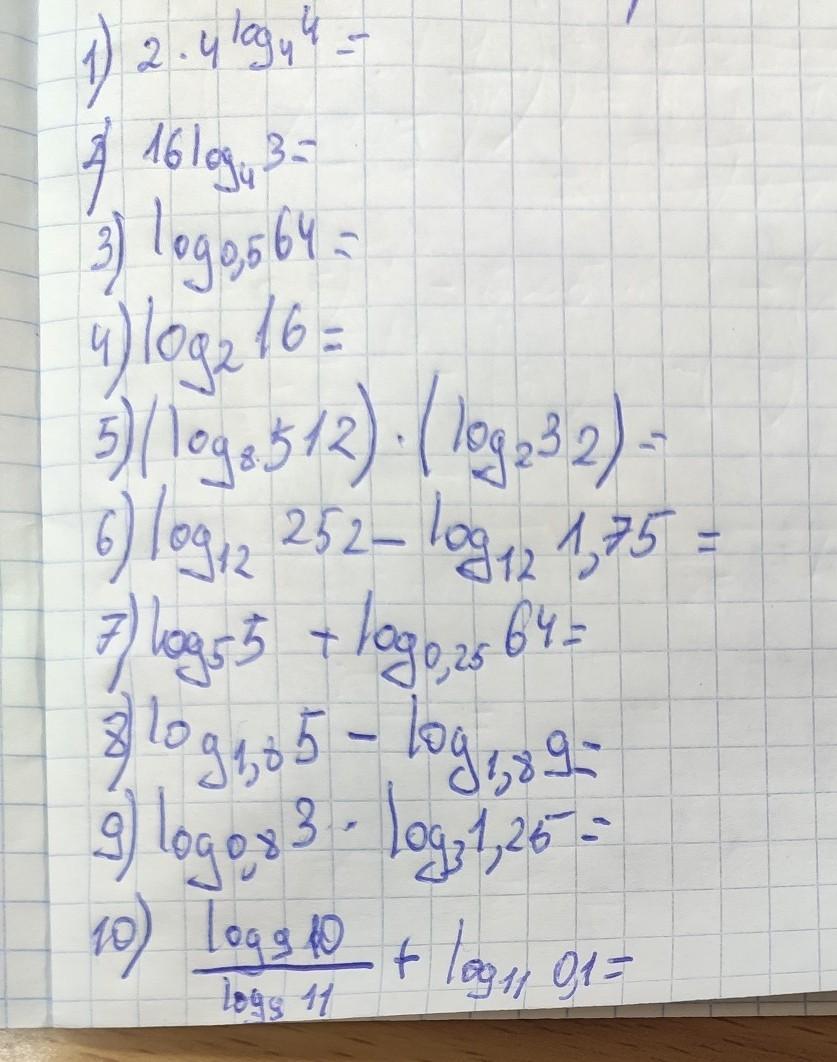 1) 2 · 4^log₄4 =
2) 16 log₄ 3 =
3) log₀,₅ 64 =
4) log₂ 16 =
5) (log₈ 512) · (log₂ 32) =
6) log₁₂ 252 - log₁₂ 1,75 =
7) log₅ 5 + log₀,₂₅ 64 =
8) log₁,₈ 5 - log₁,₈ 9 =
9) log₀,₈ 3 · log₃ 1,25 =
10) log₉ 10 / log₉ 11 + log₁₁ 0,1 =